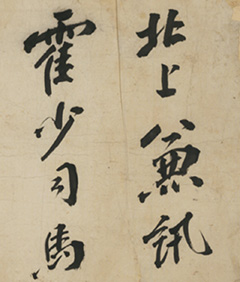 北上兼訊
霍少司馬